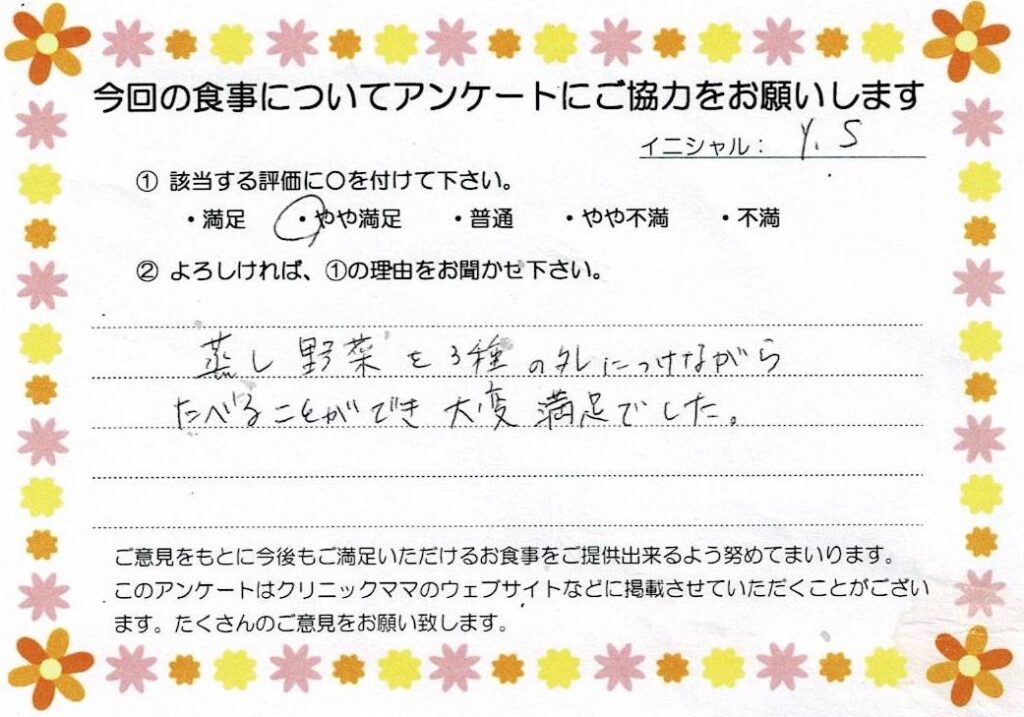 今回の食事についてアンケートにご協力をお願いします
イニシャル： Y. S
① 該当する評価に〇を付けて下さい。
・満足 ・やや満足 ・普通 ・やや不満 ・不満
② よろしければ、①の理由をお聞かせ下さい。
蒸し野菜を3種のタレにつけながら
たべることができ大変満足でした。
ご意見をもとに今後もご満足いただけるお食事をご提供出来るよう努めてまいります。
このアンケートはクリニックママのウェブサイトなどに掲載させていただくことがござい
ます。たくさんのご意見をお願い致します。